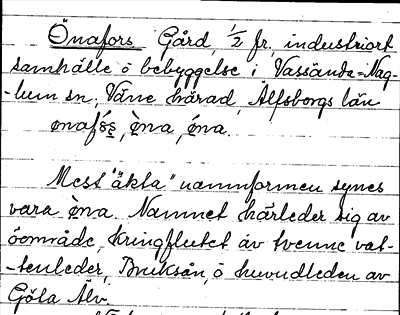 Önafors Gård, 1/2 fr, industriort
samhälle o bebyggelse i Vassända-Nag-
-lum sn, Väne härad, Älfsborgs län
ɷna, ɷ́na.
Mest "äkta" namnformen synes
vara ɷ̀na. Namnet härleder sig av
öområde, kringflutet av tvenne vat-
-tenleder, Bruksån, o huvudleden av
Göta Älv.